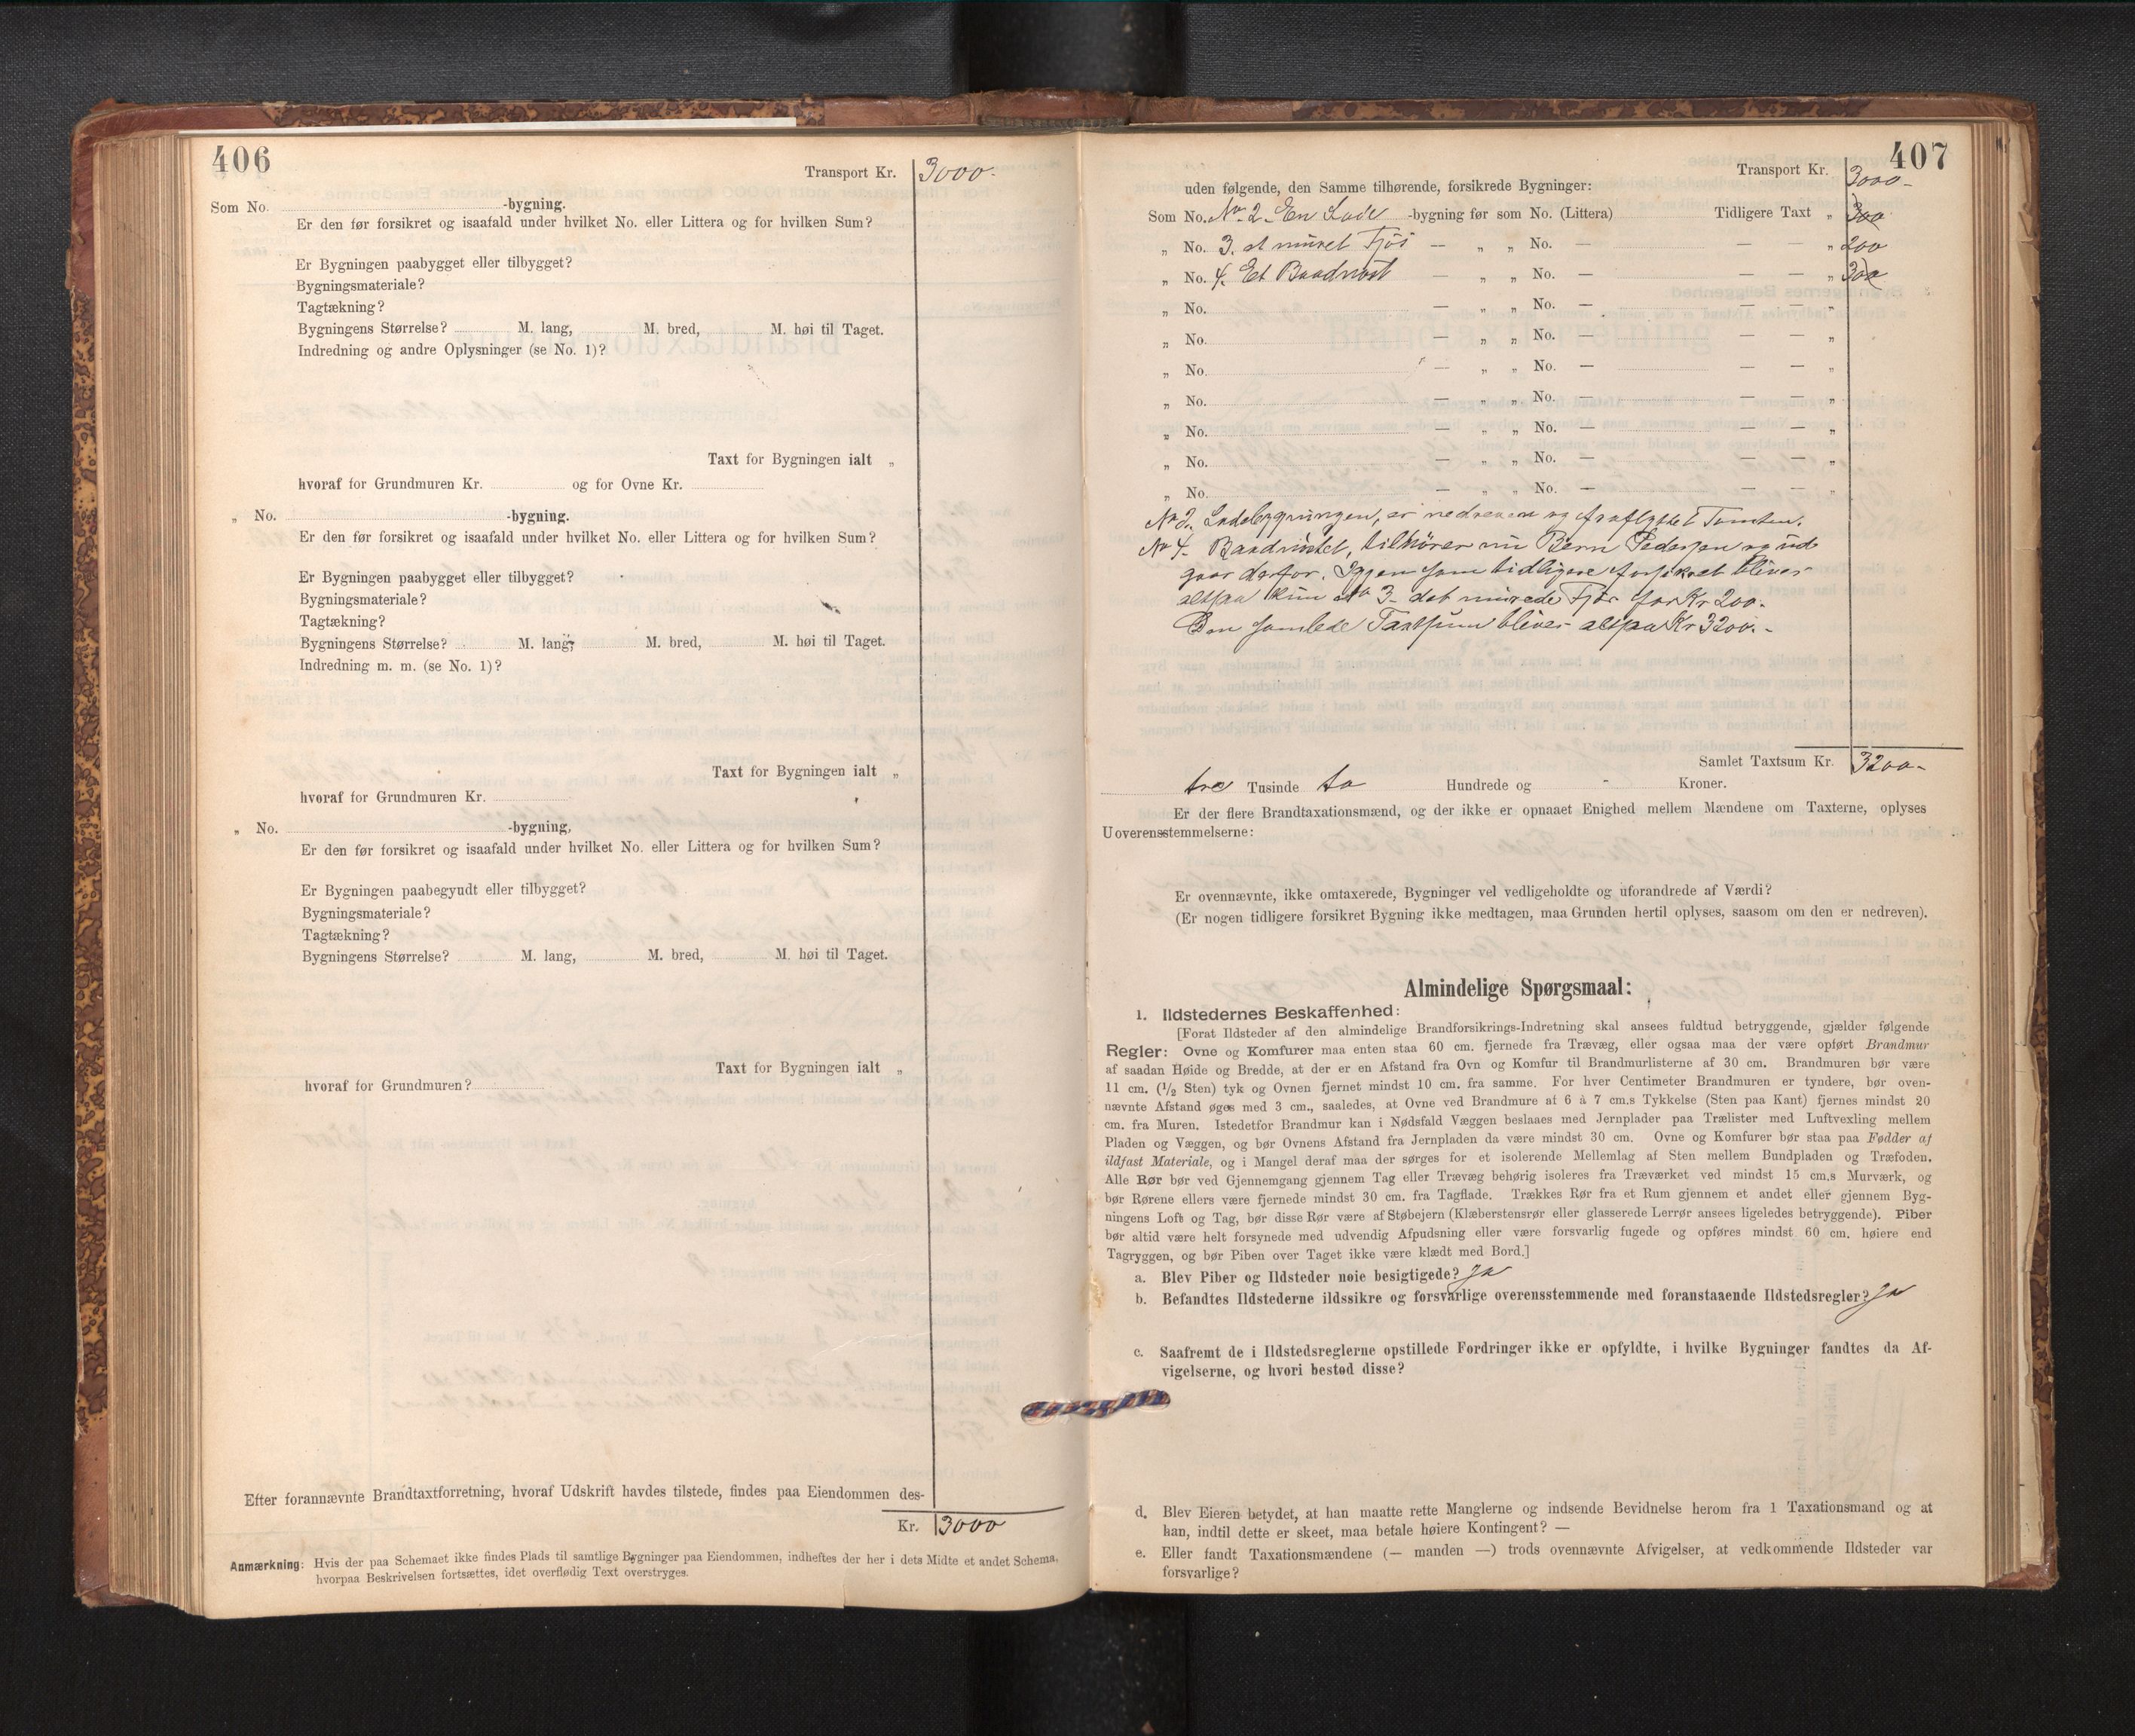 406
Transport Kr. 3000-
Som No. -bygning.
Er den før forsikret og isaafald under hvilket No. eller Littera og for hvilken Sum?
Er Bygningen paabygget eller tilbygget?
Bygningsmateriale?
Tagtækning?
Bygningens Størrelse? M. lang, M. bred, M. høi til Taget.
Indredning og andre Oplysninger (se No. 1)?
Taxt for Bygningen ialt „
hvoraf for Grundmuren Kr. og for Ovne Kr.
„ No. -bygning.
Er den før forsikret og isaafald under hvilket No. eller Littera og for hvilken Sum?
Er Bygningen paabygget eller tilbygget?
Bygningsmateriale?
Tagtækning?
Bygningens Størrelse? M. lang, M. bred, M. høi til Taget.
Indredning m. m. (se No. 1)?
Taxt for Bygningen ialt „
hvoraf for Grundmuren Kr.
„ No. -bygning,
Er den før forsikret og isaafald under hvilket No. eller Littera og for hvilken Sum?
Er Bygningen paabegyndt eller tilbygget?
Bygningsmateriale?
Tagtækning?
Bygningens Størrelse? M. lang, M. bred, M. høi til Taget.
Taxt for Bygningen ialt „
hvoraf for Grundmuren?
Efter forannævnte Brandtaxtforretning, hvoraf Udskrift havdes tilstede, findes paa Eiendommen des-
Kr. 3000
Anmærkning: Hvis der paa Schemaet ikke findes Plads til samtlige Bygninger paa Eiendommen, indheftes der her i dets Midte et andet Schema,
hvorpaa Beskrivelsen fortsættes, idet overflødig Text overstryges.
407
Transport Kr. 3000-
uden følgende, den Samme tilhørende, forsikrede Bygninger:
Som No. No 2. En Lade -bygning før som No. (Littera) Tidligere Taxt „ 300
„ No. 3. et muret Fjøs — „ „ No. — — — „ 200
„ No. 4. Et Baadnøst — „ „ No. — — — „ 300
„ No. — „ „ No. — — — „
„ No. — „ „ No. — — — „
„ No. — „ „ No. — — — „
„ No. — „ „ No. — — — „
„ No. — „ „ No. — — — „
„ No. — „ „ No. — — — „
„ No. — „ „ No. — — — „
No 2. Ladebygningen, er nedreven og fraflyttet Tomten.
No 4. Baadnøstet, tilhører nu Bern Pedersen og ud
gaar derfor. Igjen som tidligere forsikret bliver
altsaa kun No 3. det murede Fjøs for Kr 200.
Den samlede Taxtsum bliver altsaa Kr 3200.-
Samlet Taxtsum Kr. 3200-
tre Tusinde to Hundrede og - Kroner.
Er der flere Brandtaxationsmænd, og der ikke er opnaaet Enighed mellem Mændene om Taxterne, oplyses
Uoverensstemmelserne:
Er ovennævnte, ikke omtaxerede, Bygninger vel vedligeholdte og uforandrede af Værdi?
(Er nogen tidligere forsikret Bygning ikke medtagen, maa Grunden hertil oplyses, saasom om den er nedreven).
Almindelige Spørgsmaal:
1. Ildstedernes Beskaffenhed:
[Forat Ildsteder af den almindelige Brandforsikrings-Indretning skal ansees fuldtud betryggende, gjælder følgende
Regler: Ovne og Komfurer maa enten staa 60 cm. fjernede fra Trævæg, eller ogsaa maa der være opført Brandmur
af saadan Høide og Bredde, at der er en Afstand fra Ovn og Komfur til Brandmurlisterne af 30 cm. Brandmuren bør være
11 cm. (½ Sten) tyk og Ovnen fjernet mindst 10 cm. fra samme. For hver Centimeter Brandmuren er tyndere, bør oven-
nævnte Afstand øges med 3 cm., saaledes, at Ovne ved Brandmure af 6 à 7 cm.s Tykkelse (Sten paa Kant) fjernes mindst 20
cm. fra Muren. Istedetfor Brandmur kan i Nødsfald Væggen beslaaes med Jernplader paa Trælister med Luftvexling mellem
Pladen og Væggen, og bør Ovnens Afstand fra Jernpladen da være mindst 30 cm. Ovne og Komfurer bør staa paa Fødder af
ildfast Materiale, og i Mangel deraf maa der sørges for et isolerende Mellemlag af Sten mellem Bundpladen og Træfoden.
Alle Rør bør ved Gjennemgang gjennem Tag eller Trævæg behørig isoleres fra Træværket ved mindst 15 cm.s Murværk, og
bør Rørene ellers være fjernede mindst 30 cm. fra Tagflade. Trækkes Rør fra et Rum gjennem et andet eller gjennem Byg-
ningens Loft og Tag, bør disse Rør være af Støbejern (Klæberstensrør eller glasserede Lerrør ansees ligeledes betryggende). Piber
bør altid være helt forsynede med udvendig Afpudsning eller være forsvarlig fugede og opføres mindst 60 cm. høiere end
Tagryggen, og bør Piben over Taget ikke være klædt med Bord.]
a. Blev Piber og Ildsteder nøie besigtigede? Ja
b. Befandtes Ildstederne ildssikre og forsvarlige overensstemmende med foranstaaende Ildstedsregler? Ja
c. Saafremt de i Ildstedsreglerne opstillede Fordringer ikke er opfyldte, i hvilke Bygninger fandtes da Af-
vigelserne, og hvori bestod disse?
d. Blev Eieren betydet, at han maatte rette Manglerne og indsende Bevidnelse herom fra 1 Taxationsmand og at
han, indtil dette er skeet, maa betale høiere Kontingent? —
e. Eller fandt Taxationsmændene (— manden —) trods ovennævnte Afvigelser, at vedkommende Ildsteder var
forsvarlige?